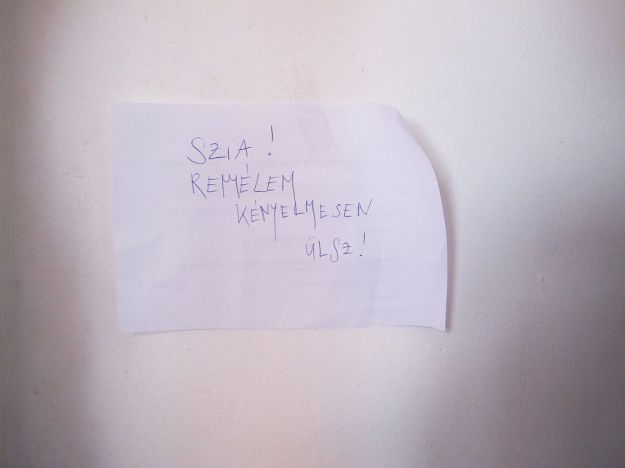 SZiA!
REMÉLEM
KÉNYELMESEN
ÜLSZ!